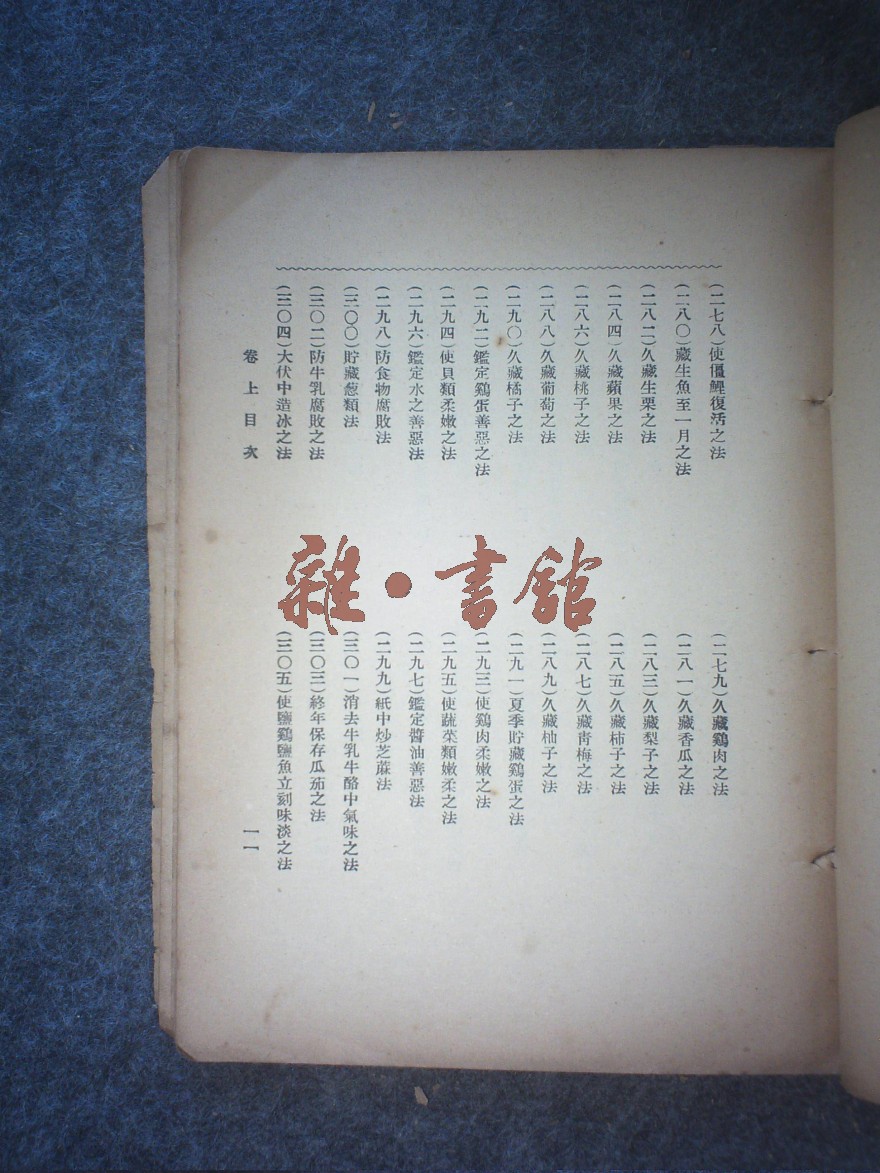 (二七八)使僵鯉復活之法
(二七九)久藏鷄肉之法
(二八〇)藏生魚至一月之法
(二八一)久藏香瓜之法
(二八二)久藏生栗之法
(二八三)久藏梨子之法
(二八四)久藏蘋果之法
(二八五)久藏柿子之法
(二八六)久藏桃子之法
(二八七)久藏靑梅之法
(二八八)久藏葡萄之法
(二八九)久藏柚子之法
(二九〇)久藏橘子之法
(二九一)夏季貯藏鷄蛋之法
(二九二)鑑定鷄蛋善惡之法
(二九三)使鷄肉柔嫩之法
(二九四)使貝類柔嫩之法
(二九五)使蔬菜類嫩柔之法
(二九六)鑑定水之善惡法
(二九七)鑑定醬油善惡法
(二九八)防食物腐敗法
(二九九)紙中炒芝蔴法
(三〇〇)貯藏葱類法
(三〇一)消去牛乳牛酪中氣味之法
(三〇二)防牛乳腐敗之法
(三〇三)終年保存瓜茄之法
(三〇四)大伏中造冰之法
(三〇五)使鹽鷄鹽魚立刻味淡之法
卷上目次
一一
雜·書館